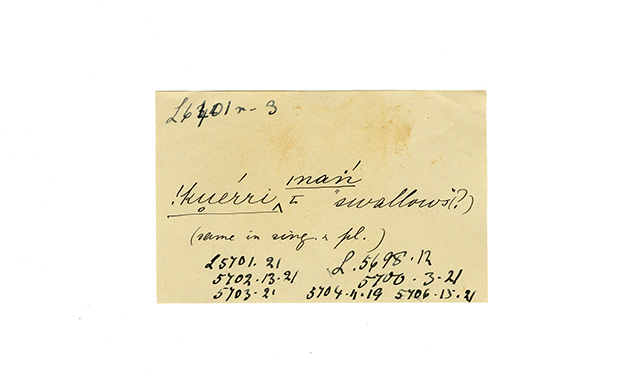 L6401r-3
!kuérri mań I "swallows"(?)
(same in sing. & pl.)
L5701.21 L.5698.12
5702.13.21 5700.3-21
5703-21 5704.11.19 5706.15.21